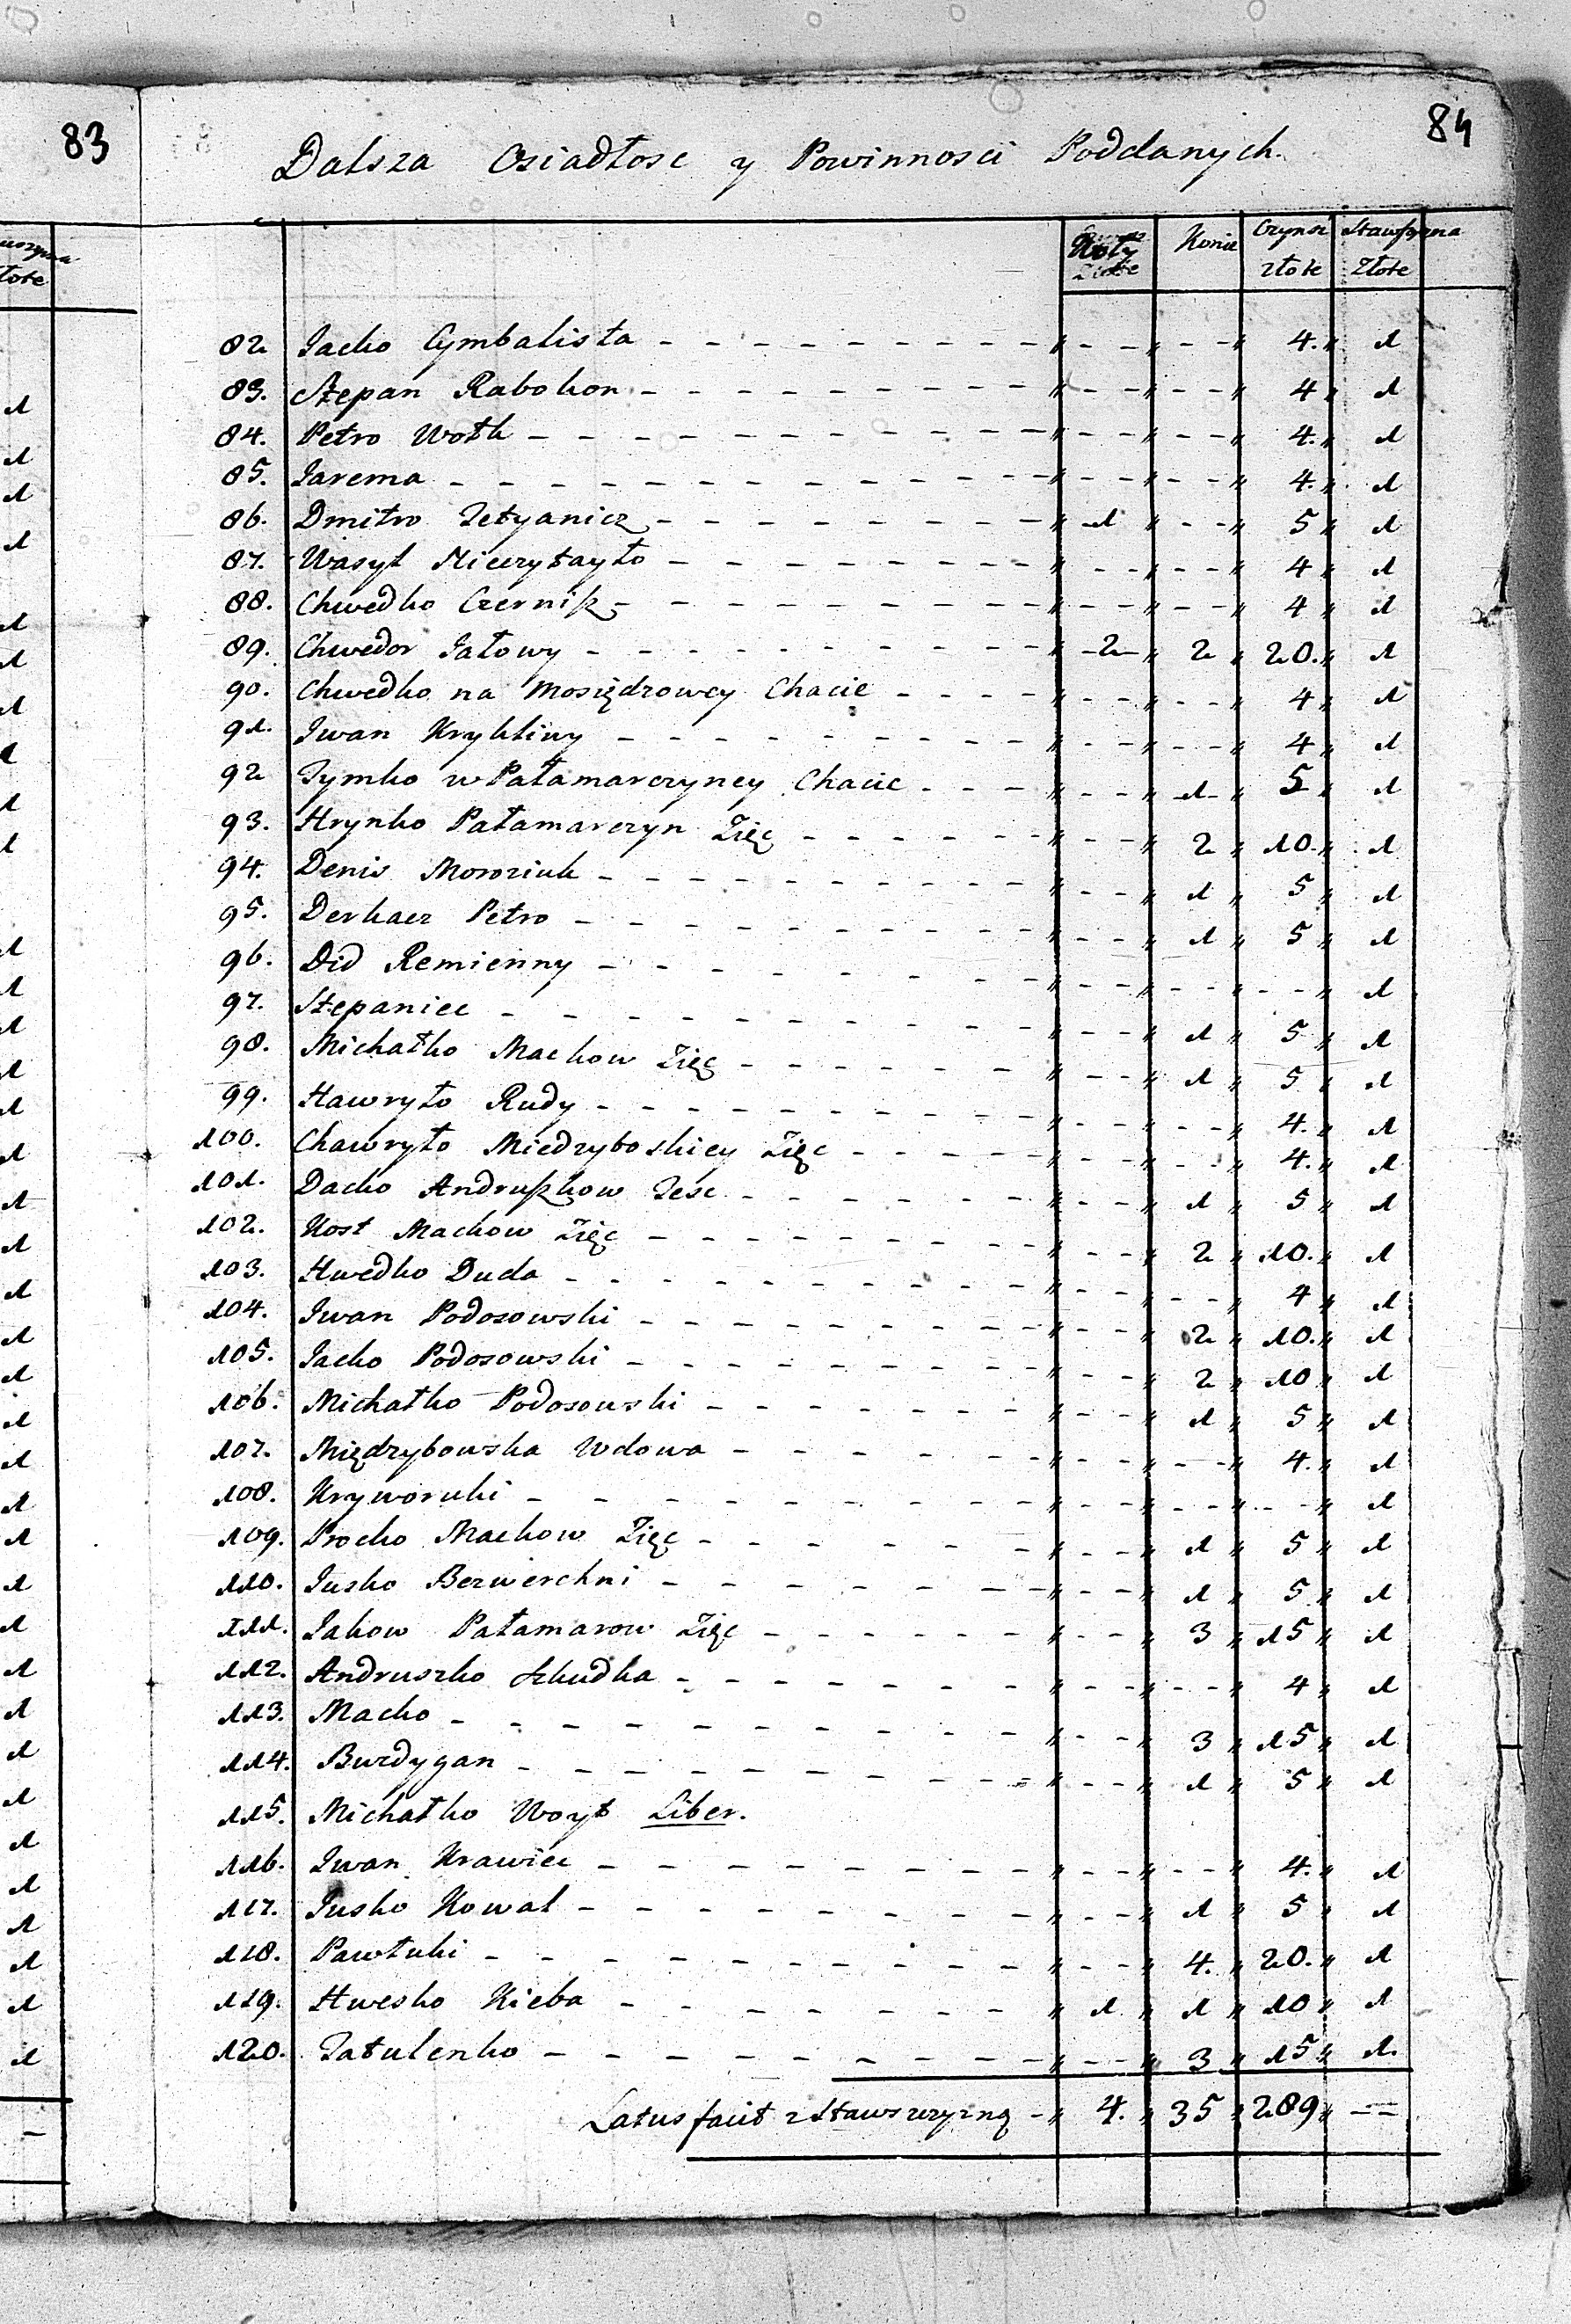 83
84
Dalsza Osiadłosc y Powinnosci Poddanych.
złote
Woły Konie Czynsz Stawszczyzna
złote złote
82 Jacko Cymbalista - - " - - " - - " 4. " 1
83. Stepan Rabokon - - " - - " - - " 4 " 1
84. Petro Wołk - - " - - " - - " 4. " 1
85. Jarema - - " - - " - - " 4. " 1
86. Dmitro Tetyanicz - - " 1 " - - " 5 " 1
87. Wasyl Nieczytayło - - " - - " - - " 4 " 1
88. Chwedko Czernisz - - " - - " - - " 4 " 1
89. Chwedor Jałowy - - " 2 " 2 " 20. " 1
90. Chwedko na Mosiędzowey Chacie - - " - - " - - " 4 " 1
91. Iwan Krykliwy - - " - - " - - " 4 " 1
92 Tymko w Pałamarczyney Chacie - - " - - " 1 " 5 " 1
93. Hrynko Pałamarczyn Zięc - - " - - " 2 " 10. " 1
94. Denis Moroziuk - - " - - " 1 " 5 " 1
95. Derkacz Petro - - " - - " 1 " 5 " 1
96. Did Remienny - - " - - " - - " - - " 1
97. Stepaniec - - " - - " 1 " 5 " 1
98. Michałko Mackow Zięc - - " - - " 1 " 5 " 1
99. Hawryło Rudy - - " - - " - - " 4. " 1
100. Chawryło Miedzyboskiey Zięc - - " - - " - - " 4. " 1
101. Dacko Andruszkow Tesc - - " - - " 1 " 5 " 1
102. Kost Mackow Zięc - - " - - " 2 " 10. " 1
103. Hwedko Duda - - " - - " - - " 4 " 1
104. Iwan Podosowski - - " - - " 2 " 10. " 1
105. Jacko Podosowski - - " - - " 2 " 10 " 1
106. Michałko Podosowski - - " - - " 1 " 5 " 1
107. Międzybowska Wdowa - - " - - " - - " 4. " 1
108. Kryworuki - - " - - " - - " - - " 1
109. Procko Mackow Zięc - - " - - " 1 " 5 " 1
110. Jusko Bezwerchni - - " - - " 1 " 5 " 1
111. Jakow Pałamarow Zięc - - " - - " 3 " 15 " 1
112. Andruszko Szkudka - - " - - " - - " 4 " 1
113. Macko - - " - - " 3 " 15 " 1
114. Burdygan - - " - - " 1 " 5 " 1
115. Michałko Woyt Liber.
116. Iwan Krawiec - - " - - " - - " 4. " 1
117. Jusko Kowal - - " - - " 1 " 5 " 1
118. Pawłuki - - " - - " 4. " 20. " 1
119. Hwesko Kieba - - " 1 " 1 " 10 " 1
120. Tatulenko - - " - - " 3 " 15 " 1.
Latus facit z Stawszczyzną - " 4. " 35 " 289 " - -